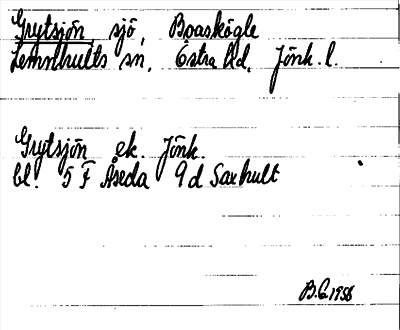 Grytsjön, sjö, Boaskögle
Lemnhults sn, Östra Hd. Jönk. l.
Grytsjön ek. Jönk.
bl. 5 F Åseda 9d Saxhult
B.G. 1956